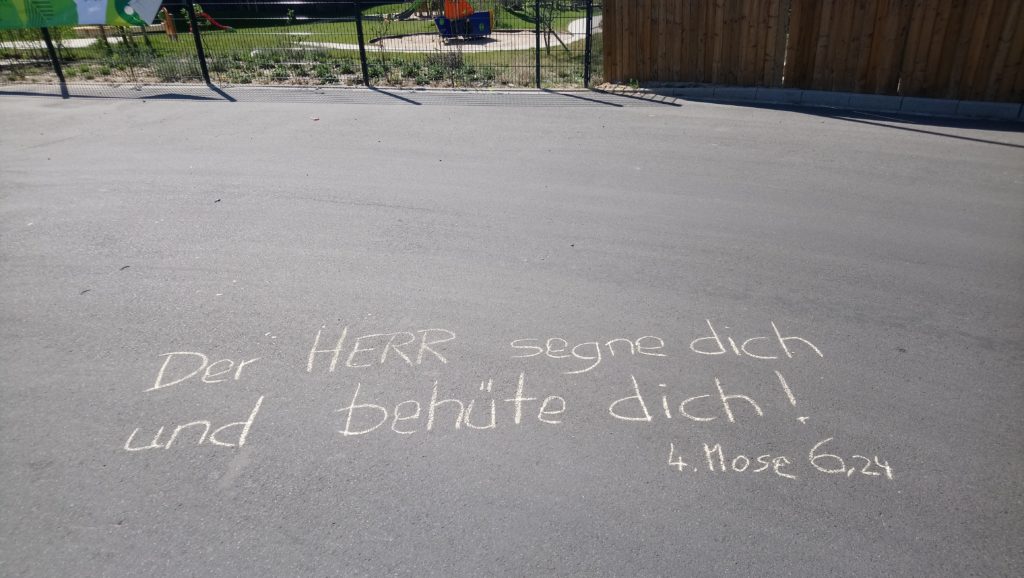 Der HERR segne dich
und behüte dich!
4. Mose 6,24